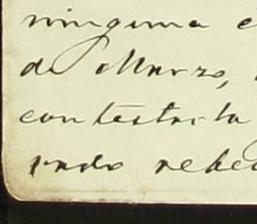 ninguna e
de Marzo,
contestarla
rebe